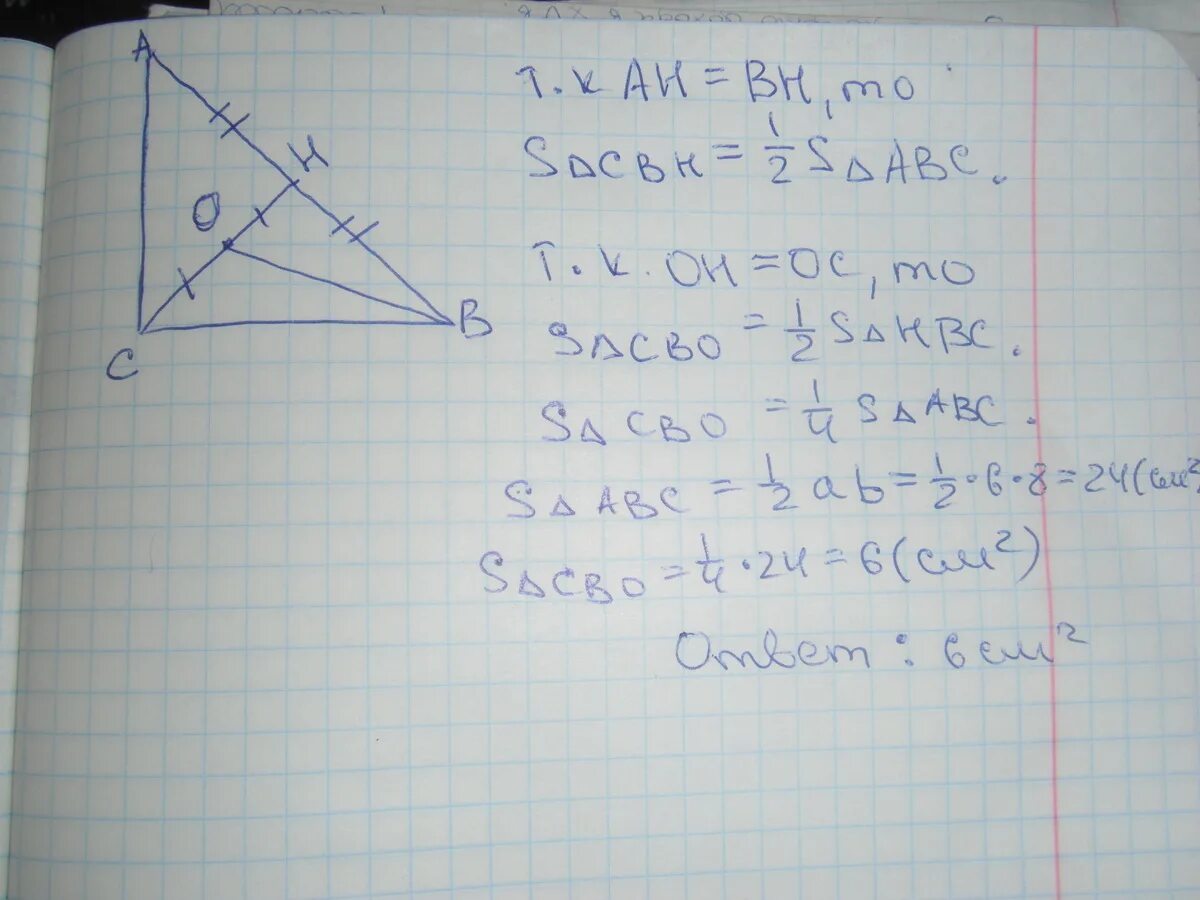 A
H
O
B
C
Т.к AH = BH, то
S△CBH = 1/2 S△ABC.
Т.к. OH = OC, то
S△CBO = 1/2 S△HBC.
S△CBO = 1/4 S△ABC.
S△ABC = 1/2 ab = 1/2 · 6 · 8 = 24 (см²
S△CBO = 1/4 · 24 = 6 (см²)
Ответ : 6 см²